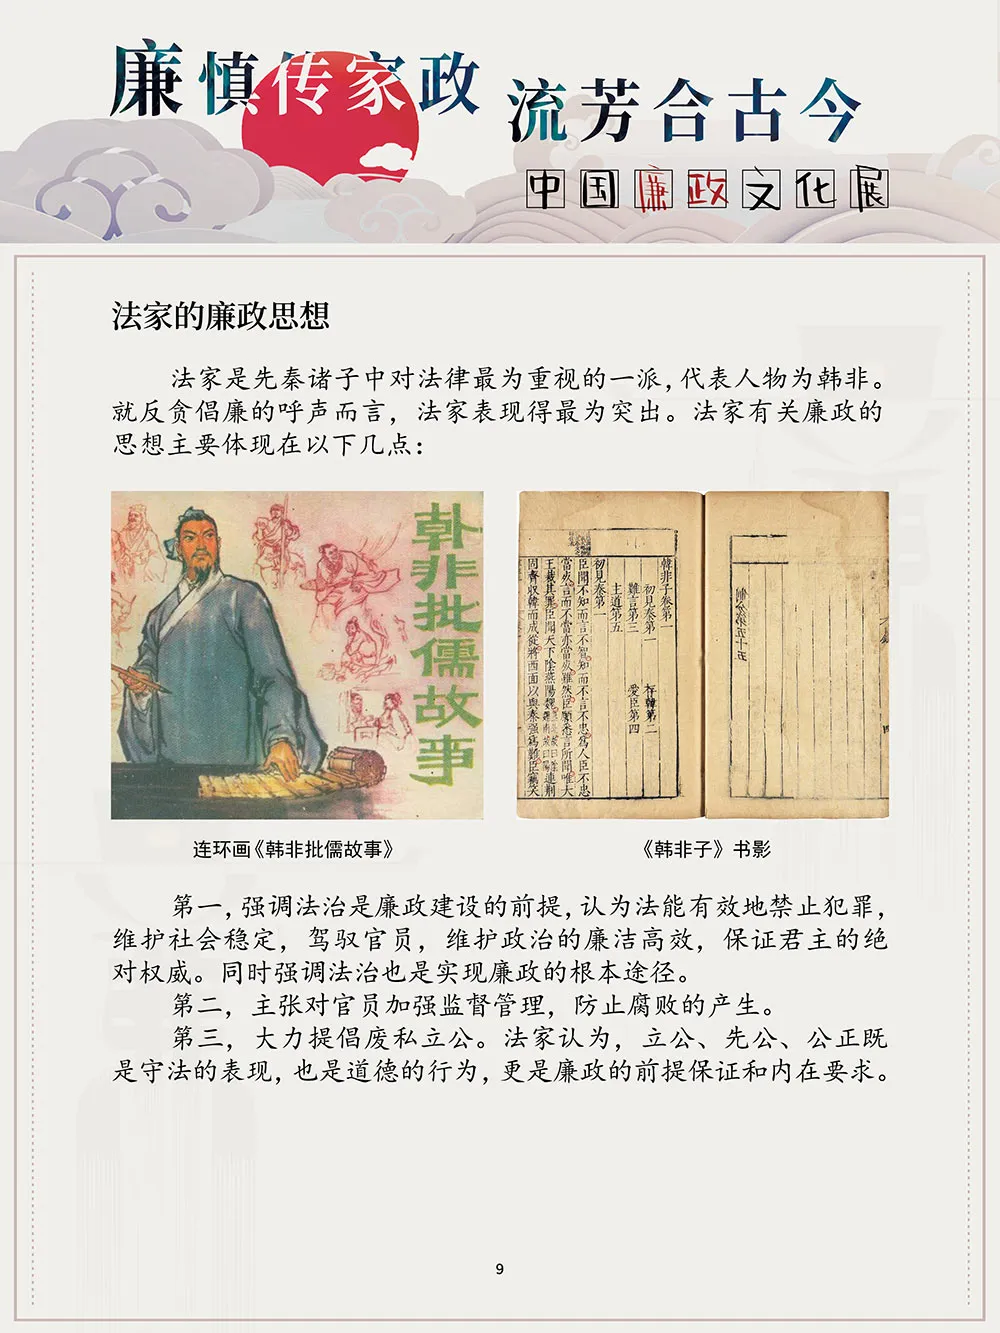 廉慎传家政
流芳合古今
中国廉政文化展
法家的廉政思想
法家是先秦诸子中对法律最为重视的一派，代表人物为韩非。
就反贪倡廉的呼声而言，法家表现得最为突出。法家有关廉政的
思想主要体现在以下几点：
韩非批儒故事
韓非子卷第一
初見秦第一
存韓第二
難言第三
愛臣第四
主道第五
初見秦第一
臣聞不知而言不智知而不言不忠爲人臣不忠
當死言而不當亦當死雖然臣願悉言所聞唯大
王裁其罪臣聞天下陰燕陽魏
連荆
固齊収韓而成從將西面以與秦强爲難臣竊笑
制分第五十五
连环画《韩非批儒故事》
《韩非子》书影
第一，强调法治是廉政建设的前提，认为法能有效地禁止犯罪，
维护社会稳定，驾驭官员，维护政治的廉洁高效，保证君主的绝
对权威。同时强调法治也是实现廉政的根本途径。
第二，主张对官员加强监督管理，防止腐败的产生。
第三，大力提倡废私立公。法家认为，立公、先公、公正既
是守法的表现，也是道德的行为，更是廉政的前提保证和内在要求。
9